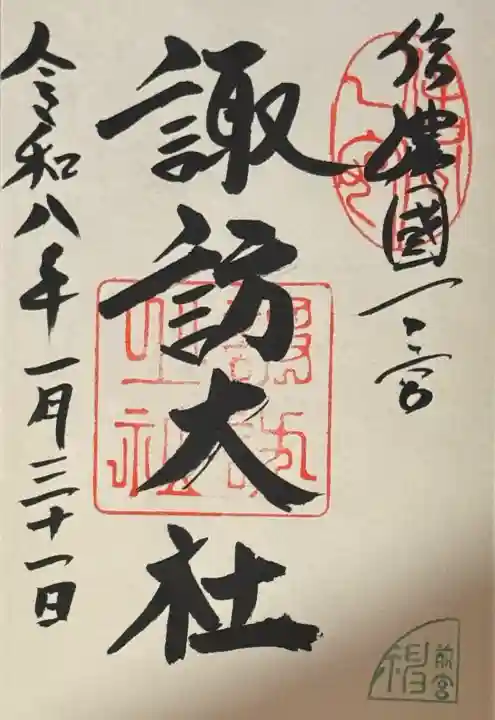 信濃國一之宮
諏訪大社
令和八年一月三十一日
諏訪
大社
前宮